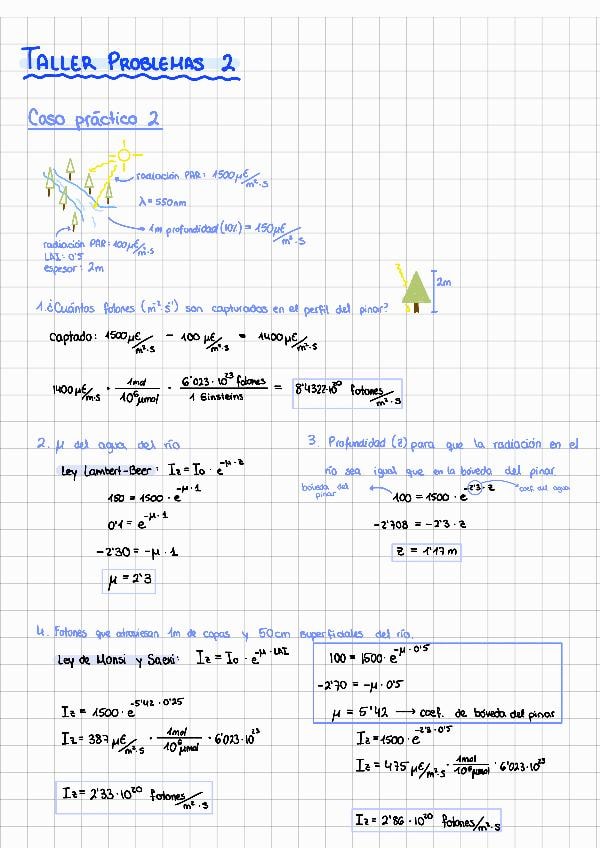 TALLER PROBLEMAS 2
Caso práctico 2
radiación PAR: 1500 µE/m²·s
λ = 550nm
1m profundidad (10%) = 150 µE/m²·s
radiación PAR: 100 µE/m²·s
LAI: 0'5
espesor: 2m
2m
1. ¿Cuántos fotones (m⁻²·s⁻¹) son capturados en el perfil del pinar?
Captado: 1500 µE/m²·s - 100 µE/m²·s = 1400 µE/m²·s
1400 µE/m·s · 1mol/10⁶ µmol · 6'023·10²³ fotones/1 Einsteins = 8'4322·10²⁰ fotones/m²·s
2. µ del agua del río
Ley Lambert-Beer: Iz = I₀ · e^-µ·z
150 = 1500 · e^-µ·1
0'1 = e^-µ·1
-2'30 = -µ · 1
µ = 2'3
3. Profundidad (z) para que la radiación en el
río sea igual que en la bóveda del pinar
bóveda del pinar
100 = 1500 · e^-2'3·z
coef. del agua
-2'708 = -2'3 · z
z = 1'17 m
4. Fotones que atraviesan 1m de copas y 50cm superficiales del río.
Ley de Monsi y Saeki: Iz = I₀ · e^-µ·LAI
Iz = 1500 · e^-5'42·0'25
Iz = 387 µE/m²·s · 1mol/10⁶ µmol · 6'023·10²³
Iz = 2'33·10²⁰ fotones/m²·s
100 = 1500 · e^-µ·0'5
-2'70 = -µ · 0'5
µ = 5'42 → coef. de bóveda del pinar
Iz = 1500 · e^-2'3·0'5
Iz = 475 µE/m²·s · 1mol/10⁶ µmol · 6'023·10²³
Iz = 2'86·10²⁰ fotones/m²·s